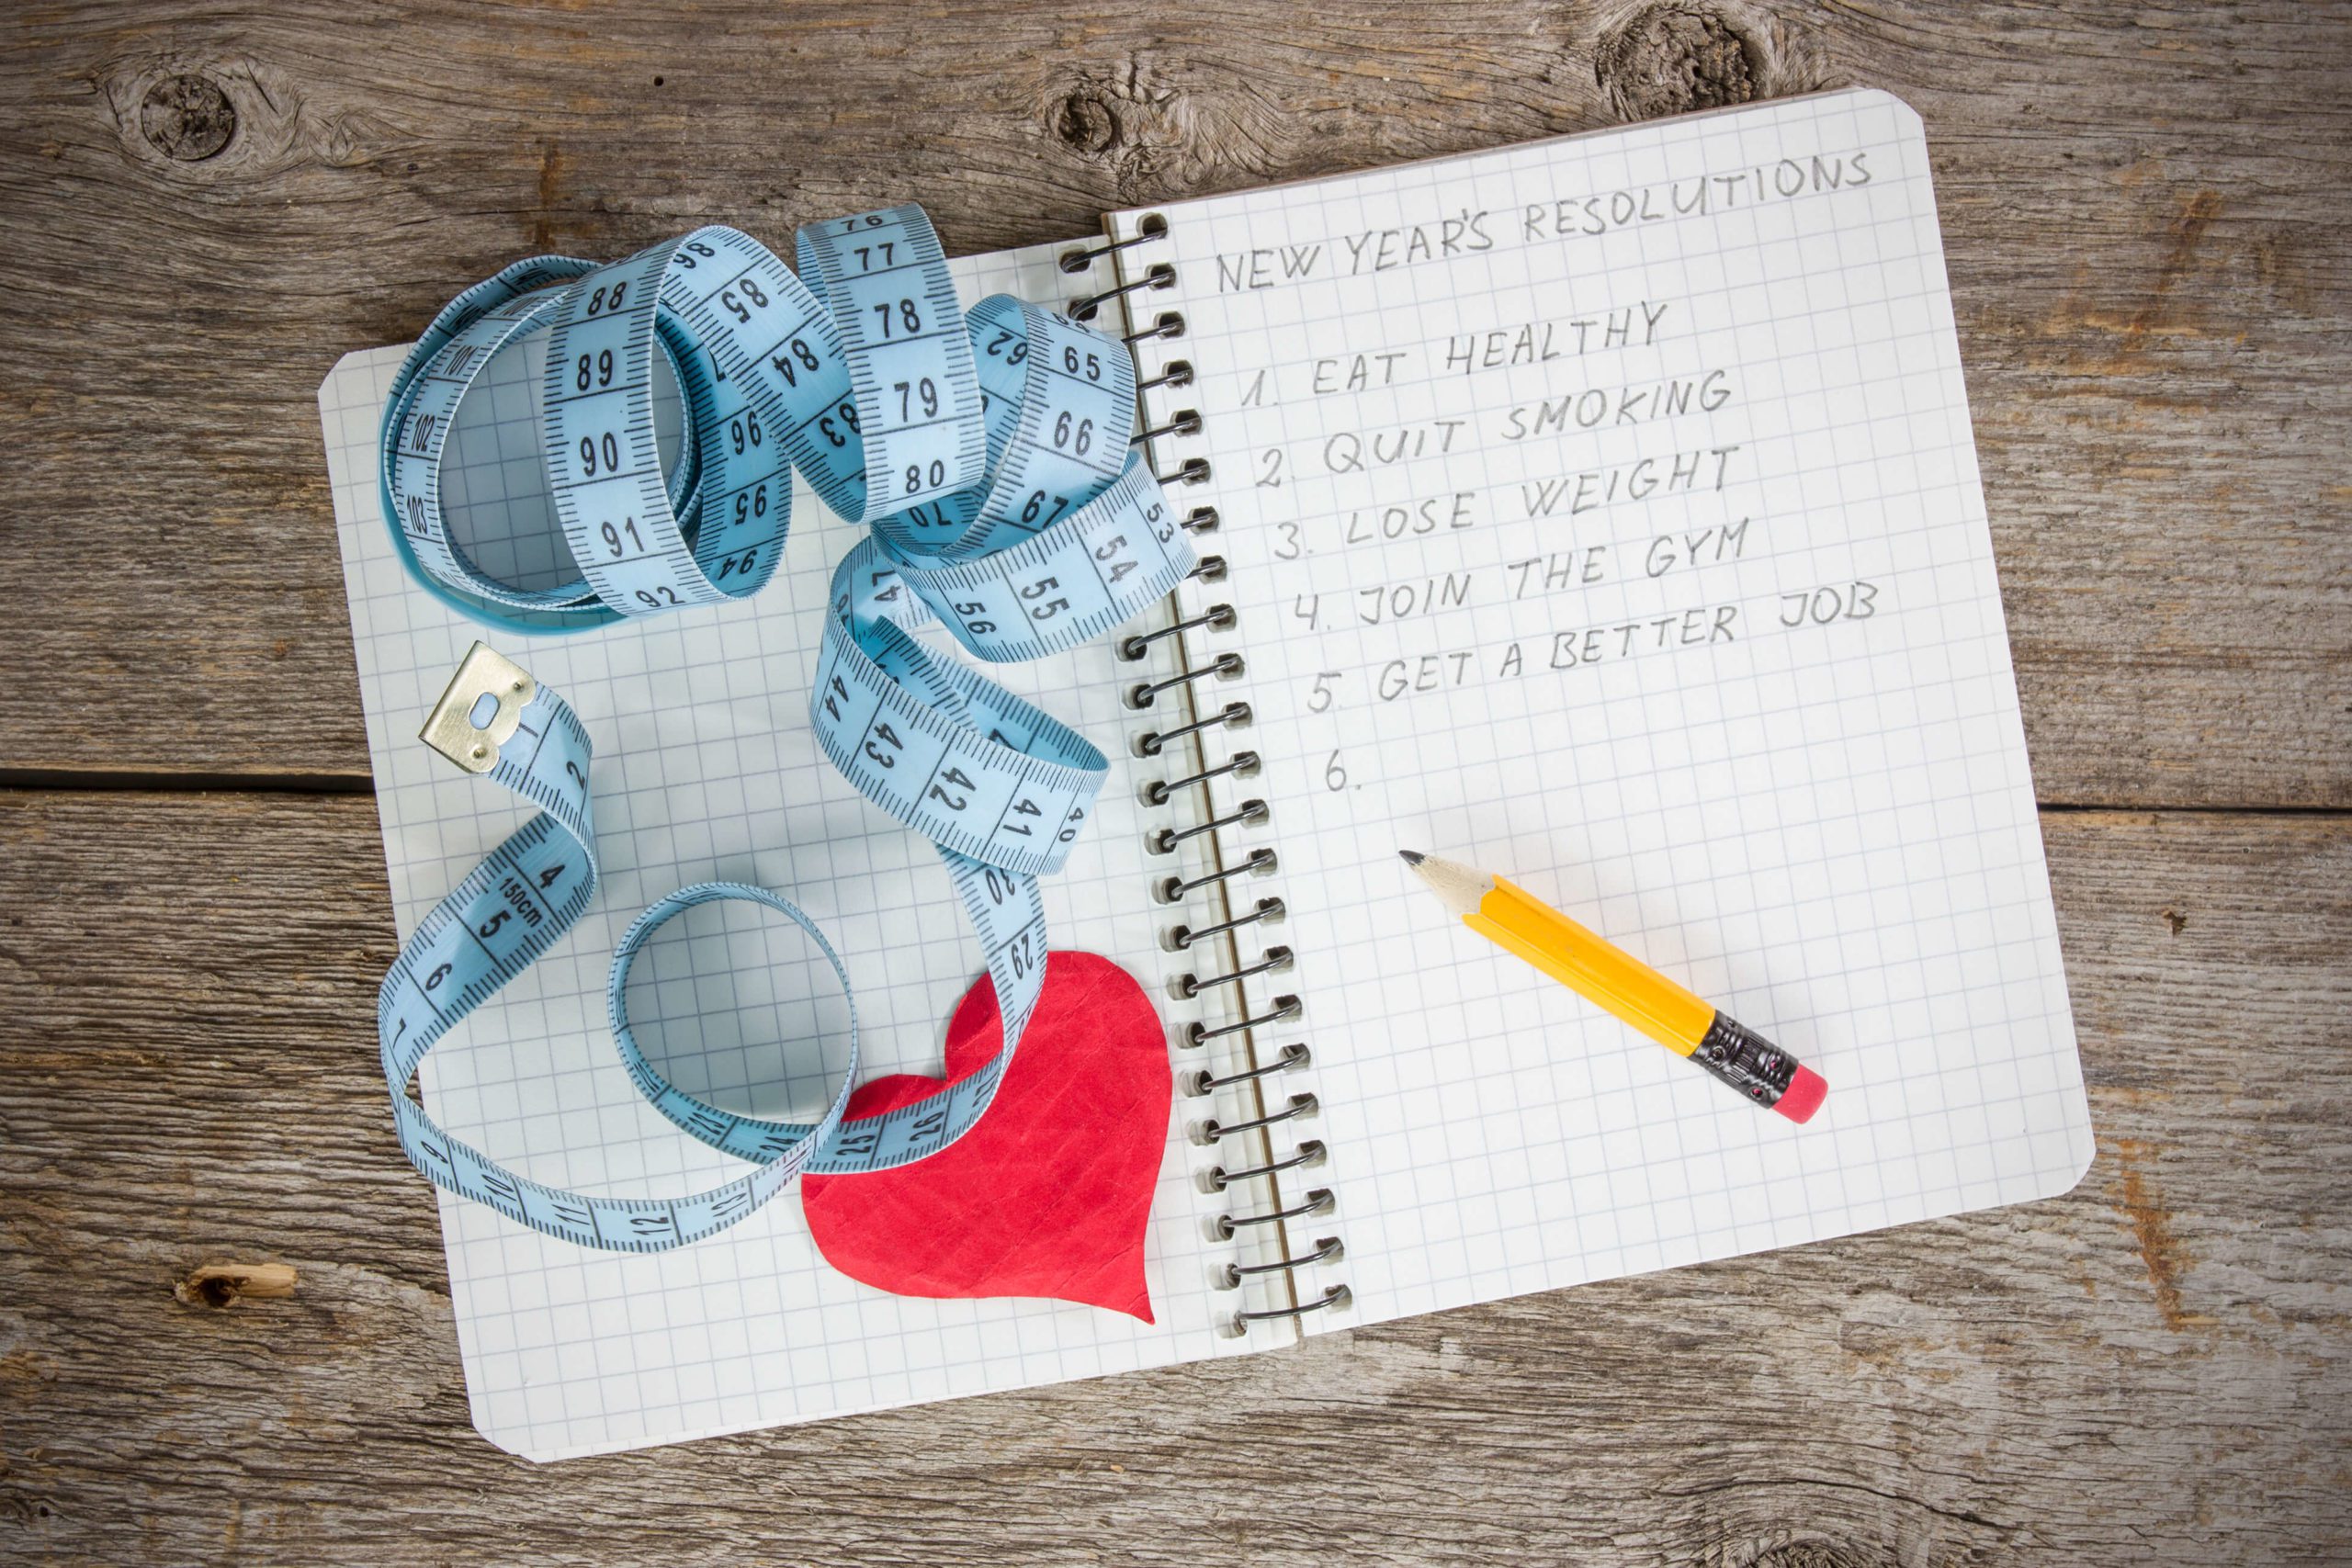 NEW YEAR'S RESOLUTIONS
1. EAT HEALTHY
2. QUIT SMOKING
3. LOSE WEIGHT
4. JOIN THE GYM
5. GET A BETTER JOB
6.
76
77
78
79
80
98
85
84
83
88
89
90
91
92
101
102
103
96
95
94
62
65
66
67
70
53
54
55
56
47
44
43
42
41
40
1
2
4
150cm
5
6
7
9
10
11
12
13
23
24
25
26
29